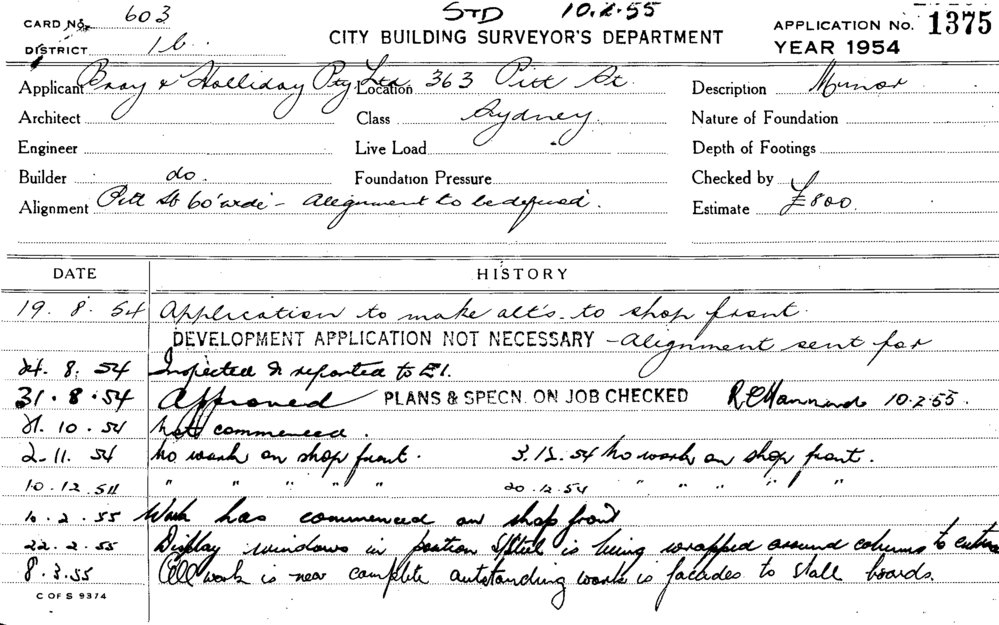 CARD No. 603 STD 10.2.55 APPLICATION No. 1375
DISTRICT 1b. CITY BUILDING SURVEYOR'S DEPARTMENT YEAR 1954
Applicant Bray & Holliday Pty Ltd Location 363 Pitt St. Description Minor
Architect Class Sydney. Nature of Foundation
Engineer Live Load Depth of Footings
Builder do. Foundation Pressure Checked by
Alignment Pitt St 60' wide - Alignment to be defined. Estimate £800
DATE HISTORY
19. 8. 54 Application to make alt's. to shop front.
DEVELOPMENT APPLICATION NOT NECESSARY - Alignment sent for
8. 54 Inspected & reported to
31. 8. 54 Approved PLANS & SPECN. ON JOB CHECKED 10.2.55.
10. 54 Not commenced.
2. 11. 54 No work on shop front. 3.12.54 No work on shop front.
10. 12. 54 " " " " " 20.12.54 " " " " " "
10. 2. 55 Work has commenced on shop front
22. 2. 55 Display windows in position S/Steel is being wrapped around columns to
8. 3. 55 All work is near complete outstanding work is facades to stall boards.
C OF S 9374